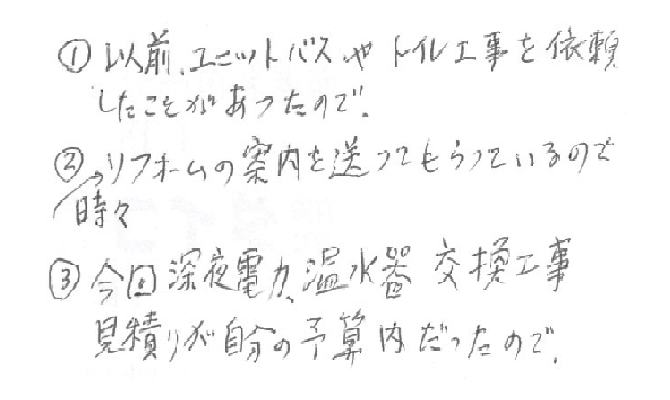 ① 以前、ユニットバスや トイレ工事を依頼
したことがあったので。
② リフォームの案内を送ってもらっているので
時々
③ 今回 深夜電力、温水器 交換工事
見積りが自分の予算内だったので。